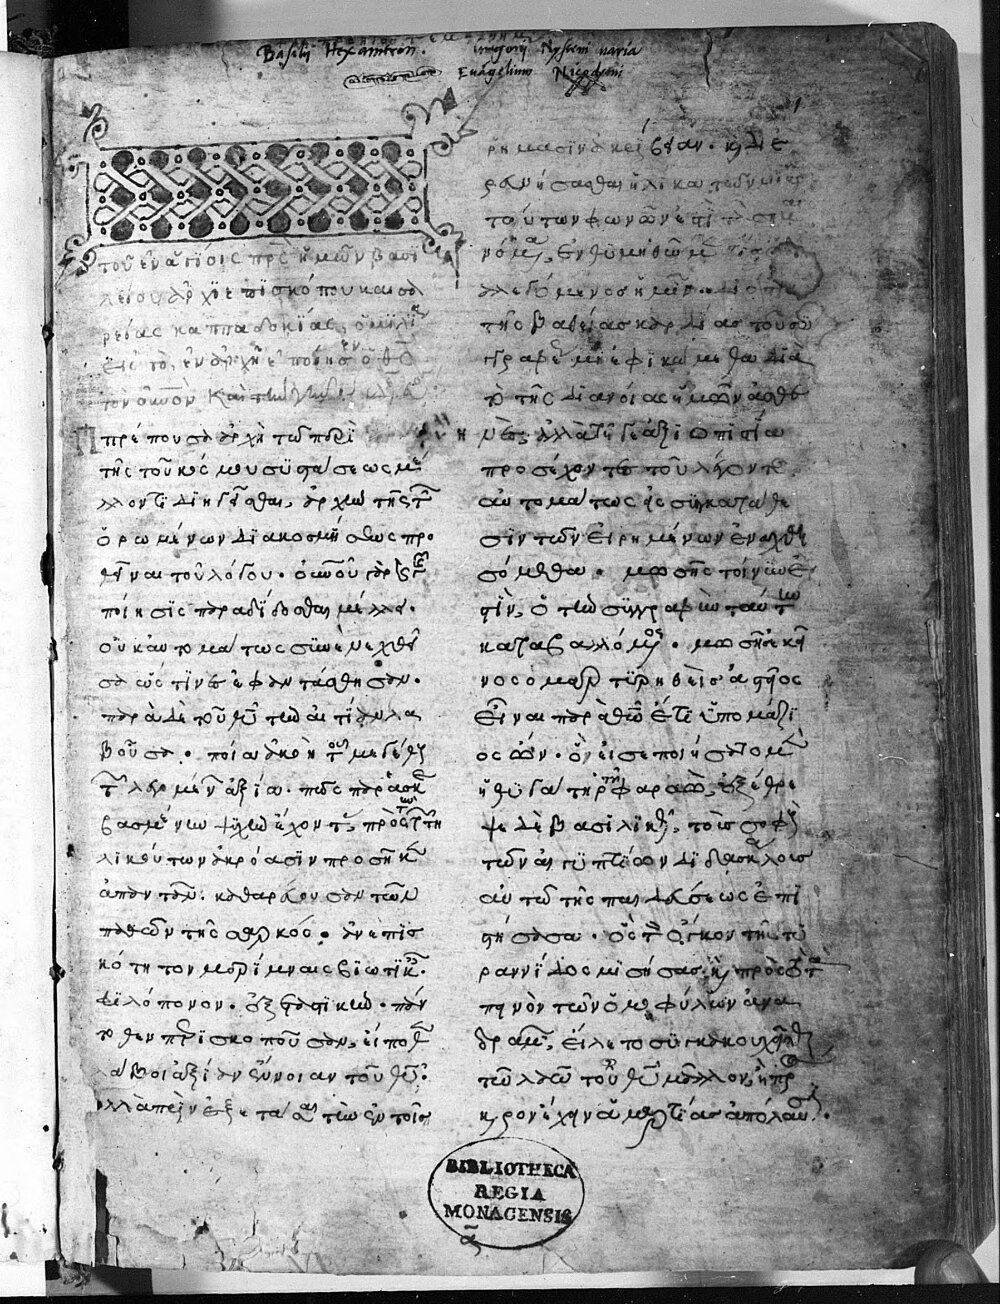 Basilij Hexameron. Gregorij Nysseni varia
Euangelium Nicodemi
1
τοῦ ἐν ἁγίοις πρς ἡμῶν βασι
λείου ἀρχιεπισκόπου καισα
ρείας καππαδοκίας, ὁμιλία
εἰς τὸ, ἐν ἀρχῇ ἐποίησεν ὁ θς
τὸν οὐνὸν καὶ τὴν γῆν
πρέπουσα ἀρχὴ τῶ περὶ
τῆς τοῦ κόσμου συστάσεως μέλ
λοντι διηγεῖσθαι, ἀρχὴν τῆς τῶν
ὁρωμένων διακοσμήσεως προ
θεῖναι τοῦ λόγου. οὐνοῦ γὰρ καὶ γῆς
ποίησις παραδίδοσθαι μέλλει.
οὐκ αὐτομάτως συνενεχθεῖ
σα ὥς τινες ἐφαντάσθησαν.
παρὰ δὲ τοῦ θῦ τὴν αἰτίαν λα
βοῦσα. ποία ἀκοὴ τοῦ μεγέθους
τῶν λεγομένων ἀξία. πῶς παρεσκευ
ασμένην ψυχὴν ἔχοντας, πρὸς τὴν τη
λικούτων ἀκρόασιν προσῆκεν
ἀπαντᾶν. καθαρεύουσαν τῶν
παθῶν τῆς σαρκός. ἀνεπισ
κότητον μερίμναις βιωτικαῖς.
φιλόπονον. ἐξεταστικήν. πάν
τοθεν περισκοποῦσαν, εἴ ποθεν
λάβοι ἀξίαν ἔννοιαν τοῦ θῦ.
ἀλλὰ πρὶν ἐξετάσαι τὴν ἐν τοῖς
ρήμασιν ἀκρίβειαν. καὶ διε
ρευνήσασθαι ἡλίκα τῶν μικρῶν
τούτων φωνῶν ἐστι τὰ σημαι
νόμενα, ἐνθυμηθῶμεν τίς ὁ δι
αλεγόμενος ἡμῖν. διότι
τῆς βαθείας καρδίας τοῦ συγ
γραφέως μὴ ἐφικώμεθα διὰ
τὸ τῆς διανοίας ἡμῶν ἀσθε
νὲς, ἀλλὰ τῆ γε ἀξιοπιστία
προσέχοντες τοῦ λέγοντος
αὐτομάτως εἰς συγκατάθε
σιν τῶν εἰρημένων ἐναχθη
σόμεθα. μωσῆς τοίνυν ἐσ
τὶν, ὁ τὴν συγγραφὴν ταύτην
καταβαλλόμενος. μωσῆς ἐκεῖ
νος ὁ μαρτυρηθεὶς ἀστεῖος
εἶναι παρὰ θῶ ἔτι ὑπομάζι
ος ὤν. ὃν εἰσεποιήσατο μὲν
ἡ θυγάτηρ φαραὼ, ἐξέθρε
ψε δὲ βασιλικῶς, τοὺς σοφοὺς
τῶν αἰγυπτίων διδασκάλους
αὐτῶ τῆς παιδεύσεως ἐπι
στήσασα. ὃς τὸν ὄγκον τῆς τυ
ραννίδος μισήσας, καὶ πρὸς τὸ τα
πεινὸν τῶν ὁμοφύλων ἀνα
δραμὼν, εἵλετο συγκακουχεῖσθαι
τῶ λαῶ τοῦ θῦ μᾶλλον, ἢ πρόσ
καιρον ἔχειν ἁμαρτίας ἀπόλαυσιν.
BIBLIOTHECA
REGIA
MONACENSIS